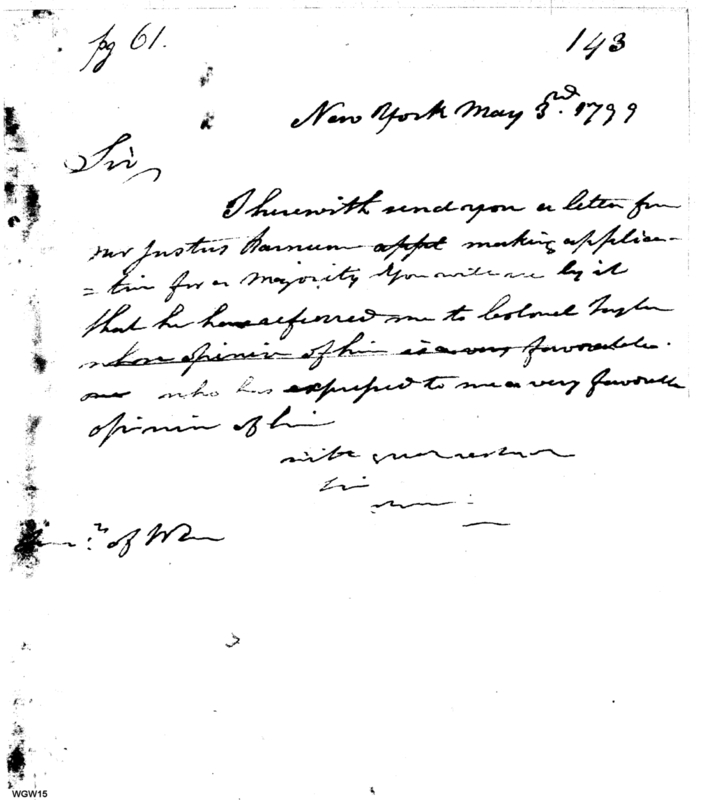 pg 61.
143
New York May 3rd. 1799
Sir
I herewith send you a letter from
Mr Justus Barnum appt making applica-
=tion for a Majority You will see by it
that he has referred me to Colonel Taylor
whose opinion of him is a very favorable.
who has expressed to me a very favorable
opinion of him
with great
Sir
of War
WGW15